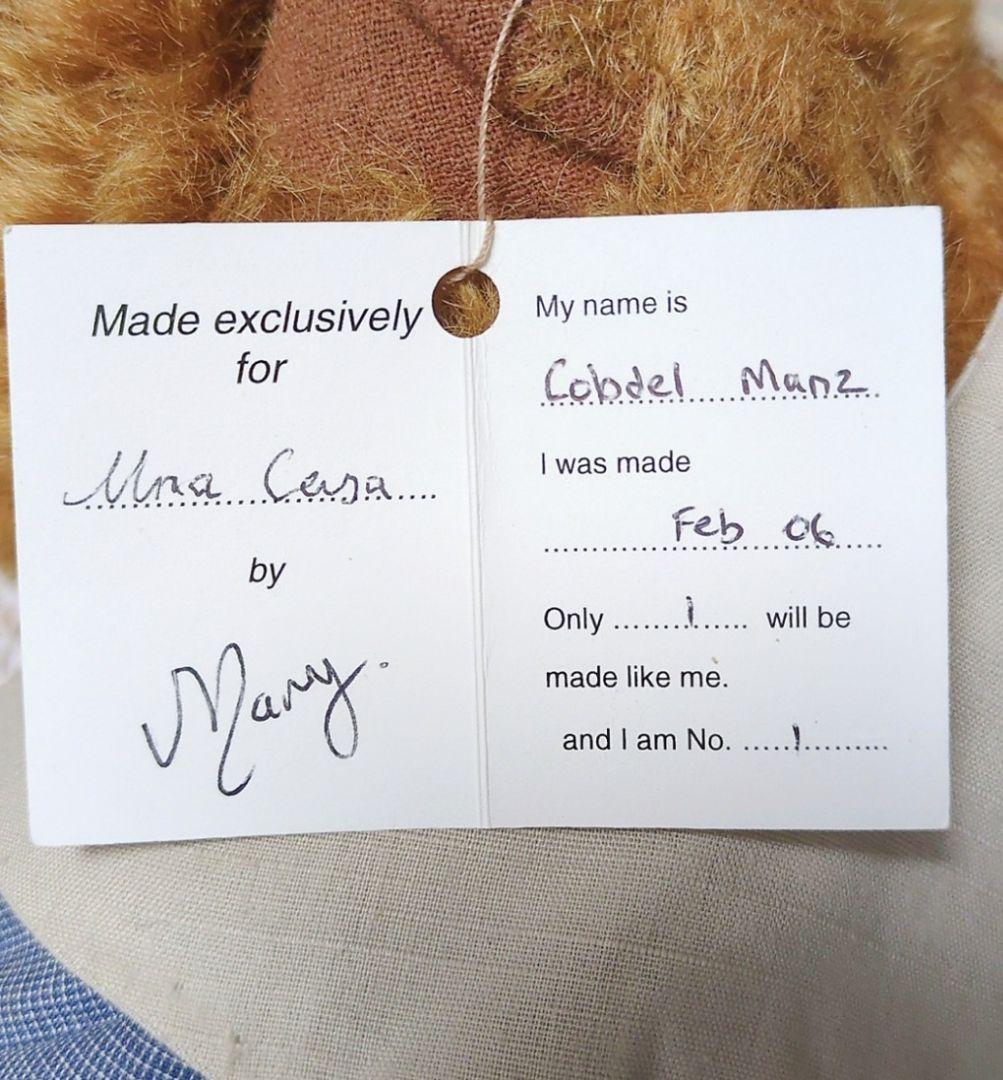 Made exclusively
for
Una Casa
by
Mary.
My name is
Cobdel Manz
I was made
Feb 06
Only ........1...... will be
made like me.
and I am No. .....1.........